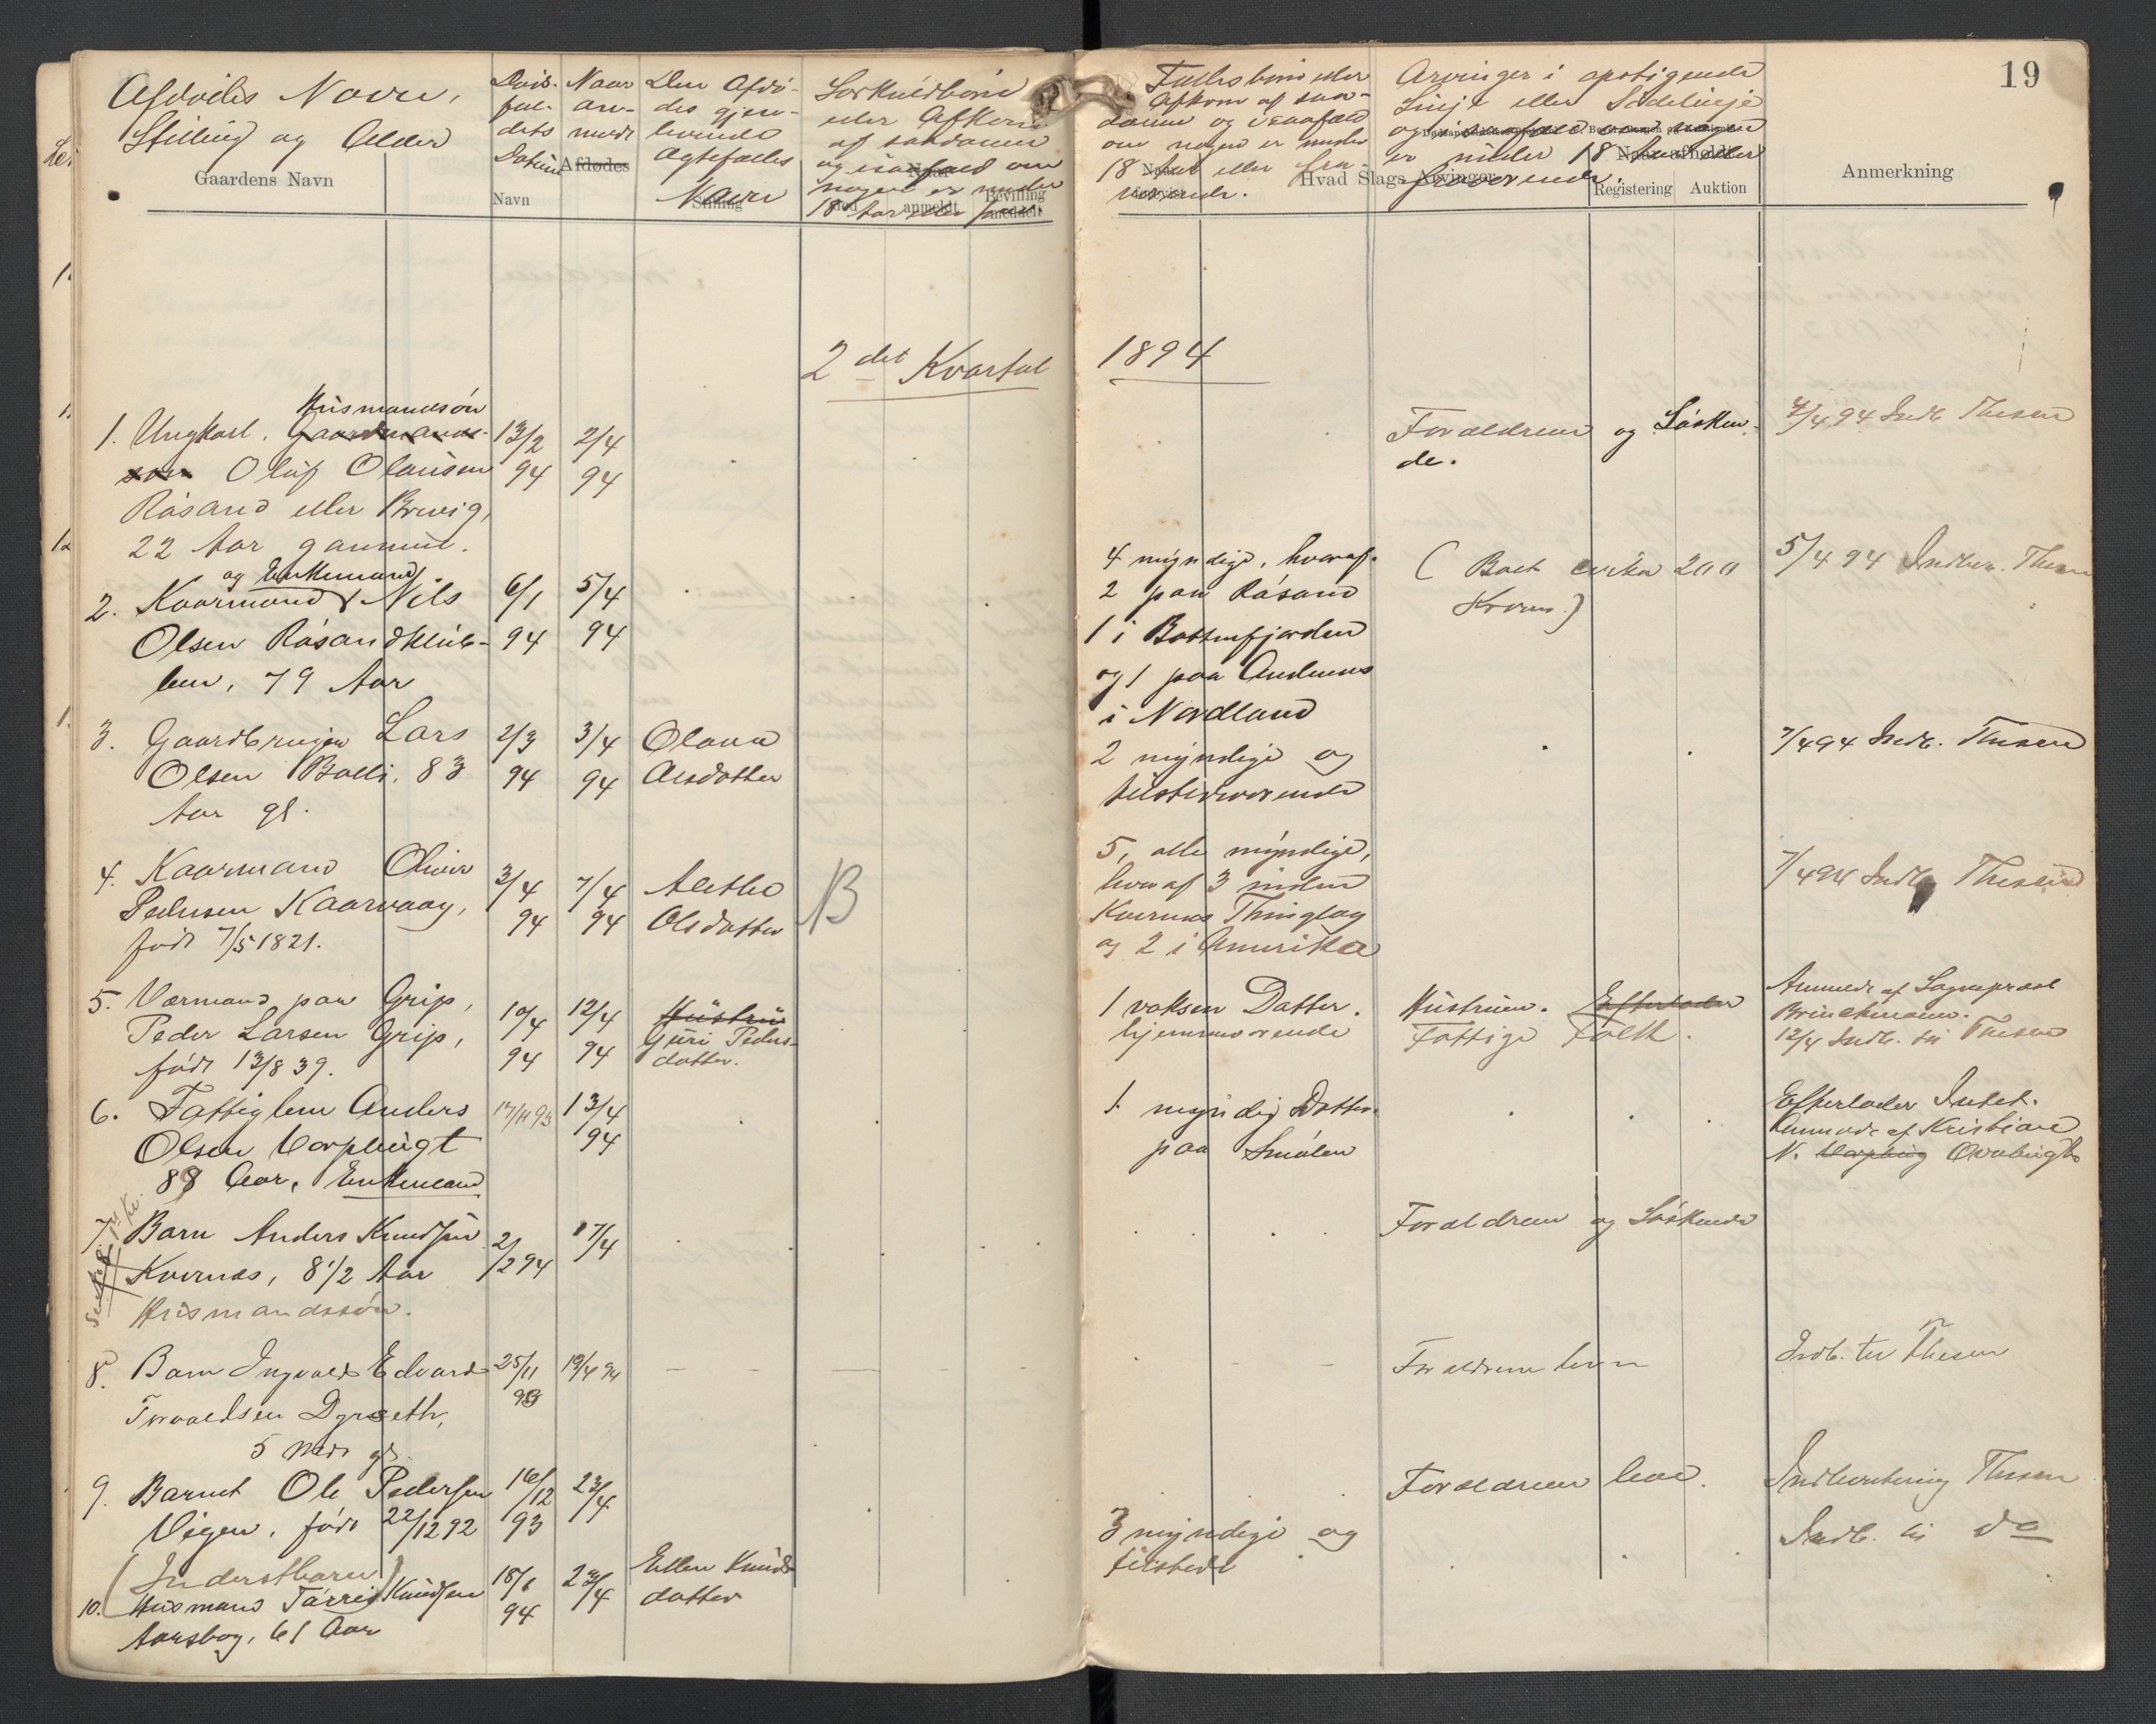 19
Afdødes Navn,
Stilling og Alder
Gaardens Navn
Døds-
fal-
dets
Datum
Navn
Naar
an-
meldt
Afdødes
Den Afdø-
des gjen-
levende
Ægtefælles
Navn
Stilling
Særkuldbørn
eller Afkom
af saadanne
og isaafald om
nogen er under
18 Aar eller
anmeldt
Bevilling
meddelt
Fællesbørn eller
Afkom af saa-
danne og isaafald
om nogen er under
18 Aar eller fra-
værende.
Arvinger i opstigende
Linje eller Sidelinje
og isaafald om nogen
er under 18 Aar eller
fraværende.
Hvad Slags Arvinger
Naar afholdt
Registering
Auktion
Anmerkning
2det Kvartal
1894
Husmandssøn
1. Ungkarl. Gaardmands-
søn Oluf Olausen
Røsand eller Brevig,
22 Aar gammel.
13/2
94
2/4
94
Forældrene og Søsken-
de.
4/4 94 Indb. Thesen
og Enkemand.
2. Kaarmand Nils
Olsen Røsandkleib-
len, 79 Aar
6/1
94
5/4
94
4 myndige, hvoraf
2 paa Røsand
1 i Battenfjorden
og 1 paa Andenes
i Nordland
( Boet cirka 200
Kroner.)
5/4 94 Indber. Thesen
3. Gaardbruger Lars
Olsen Bolli, 83
Aar gl.
2/3
94
3/4
94
Olava
Olsdatter
2 myndige og
tilstedeværende
7/4 94 Indb. Thesen
4. Kaarmand Oliver
Pedersen Kaarvaag,
født 7/5 1821.
3/4
94
7/4
94
Alethe
Olsdatter
B
5, alle myndige,
hvoraf 3 inden
Kvernes Thinglag
og 2 i Amerika
7/4 94 Indb. Thesen
5. Værmand paa Grip,
Peder Larsen Grip,
født 13/8 39.
10/4
94
12/4
94
Hustru
Guri Peders-
datter.
1 voksen Datter.
hjemmeværende
Hustruen. Efterlader
Fattige Folk.
Anmeldt af Sognepræst
Brinchmann.
12/4 Indb. til Thesen
6. Fattiglem Anders
Olsen Varpbugt
88 Aar, Enkemand
17/11 93
13/4
94
1 myndig Datter
paa Smølen
Efterlader Intet.
Anmeldt af Kristian
N. Varpbug
7. Barn Anders Knudsen
Kvernes, 8 1/2 Aar
Husmandssøn.
2/2 94
17/4
Forældrene og Søskende
8. Barn Ingvald Edvard
Torvaldsen Dyrseth,
5 Mdr gl.
25/11
93
19/4 94
Forældrene lever
Indb. til Thesen
9. Barnet Ole Pedersen
Vigen, født 22/12 92
(Inderstbarn)
16/12
93
23/4
Forældrene leve.
Indberetning Thesen
10. Husmand Tørris Knudsen
Aarsbog, 61 Aar
18/1
94
23/4
Ellen Knuds-
datter
3 myndige og
tilstede
Indb. til do